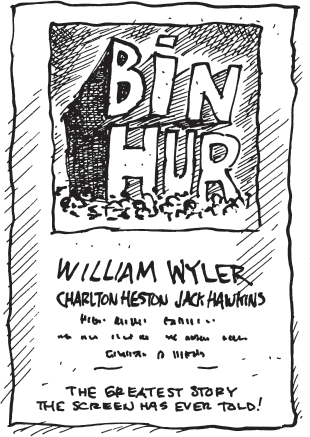 BiN
HUR
WILLIAM WYLER
CHARLTON HESTON JACK HAWKINS
THE GREATEST STORY
THE SCREEN HAS EVER TOLD!